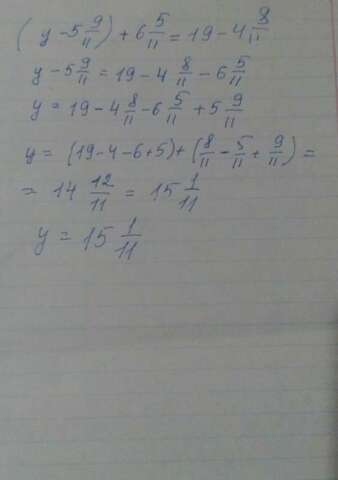 (y - 5 9/11) + 6 5/11 = 19 - 4 8/11
y - 5 9/11 = 19 - 4 8/11 - 6 5/11
y = 19 - 4 8/11 - 6 5/11 + 5 9/11
y = (19 - 4 - 6 + 5) + (8/11 - 5/11 + 9/11) =
= 14 12/11 = 15 1/11
y = 15 1/11